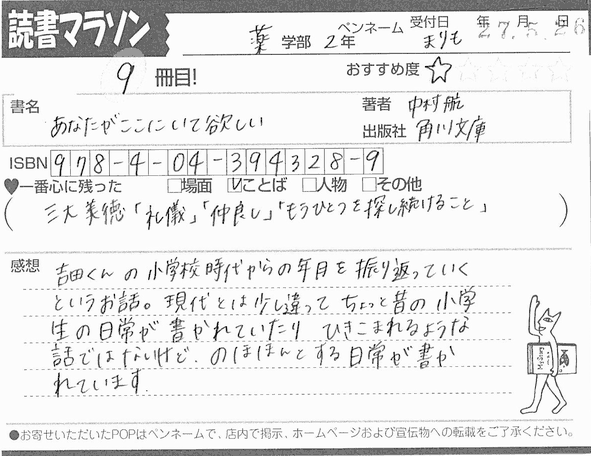 読書マラソン
薬 学部 2年 ペンネーム まりも 受付日 27.5.26 年 月 日
9 冊目! おすすめ度 ☆
書名 あなたがここにいて欲しい
著者 中村航
出版社 角川文庫
ISBN 978-4-04-394328-9
♥一番心に残った □場面 ☑ことば □人物 □その他
(三大美徳「礼儀」「仲良し」「もうひとつを探し続けること」)
感想 吉田くんの小学校時代からの年月を振り返っていく
というお話。現代とは少し違ってちょっと昔の小学
生の日常が書かれていたり ひきこまれるような
話ではないけど、のほほんとする日常が書か
れています.
●お寄せいただいたPOPはペンネームで、店内で掲示、ホームページおよび宣伝物への転載をご了承ください。